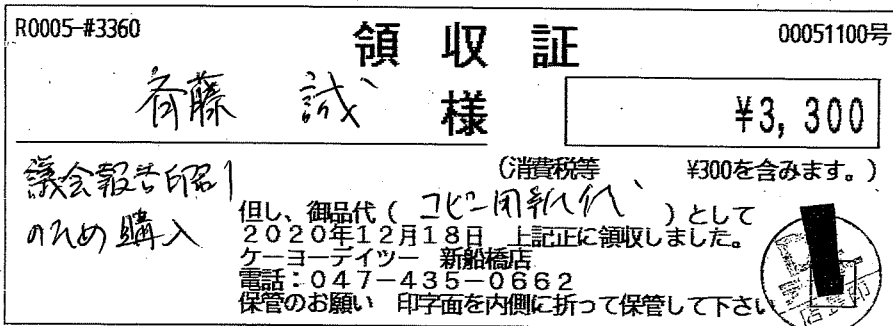 R0005-#3360
領収証
00051100号
斉藤 誠 様
¥3,300
(消費税等 ¥300を含みます。)
議会報告印刷
のため購入
但し、御品代( コピー用紙代 )として
2020年12月18日 上記正に領収しました。
ケーヨーデイツー 新船橋店
電話:047-435-0662
保管のお願い 印字面を内側に折って保管して下さい